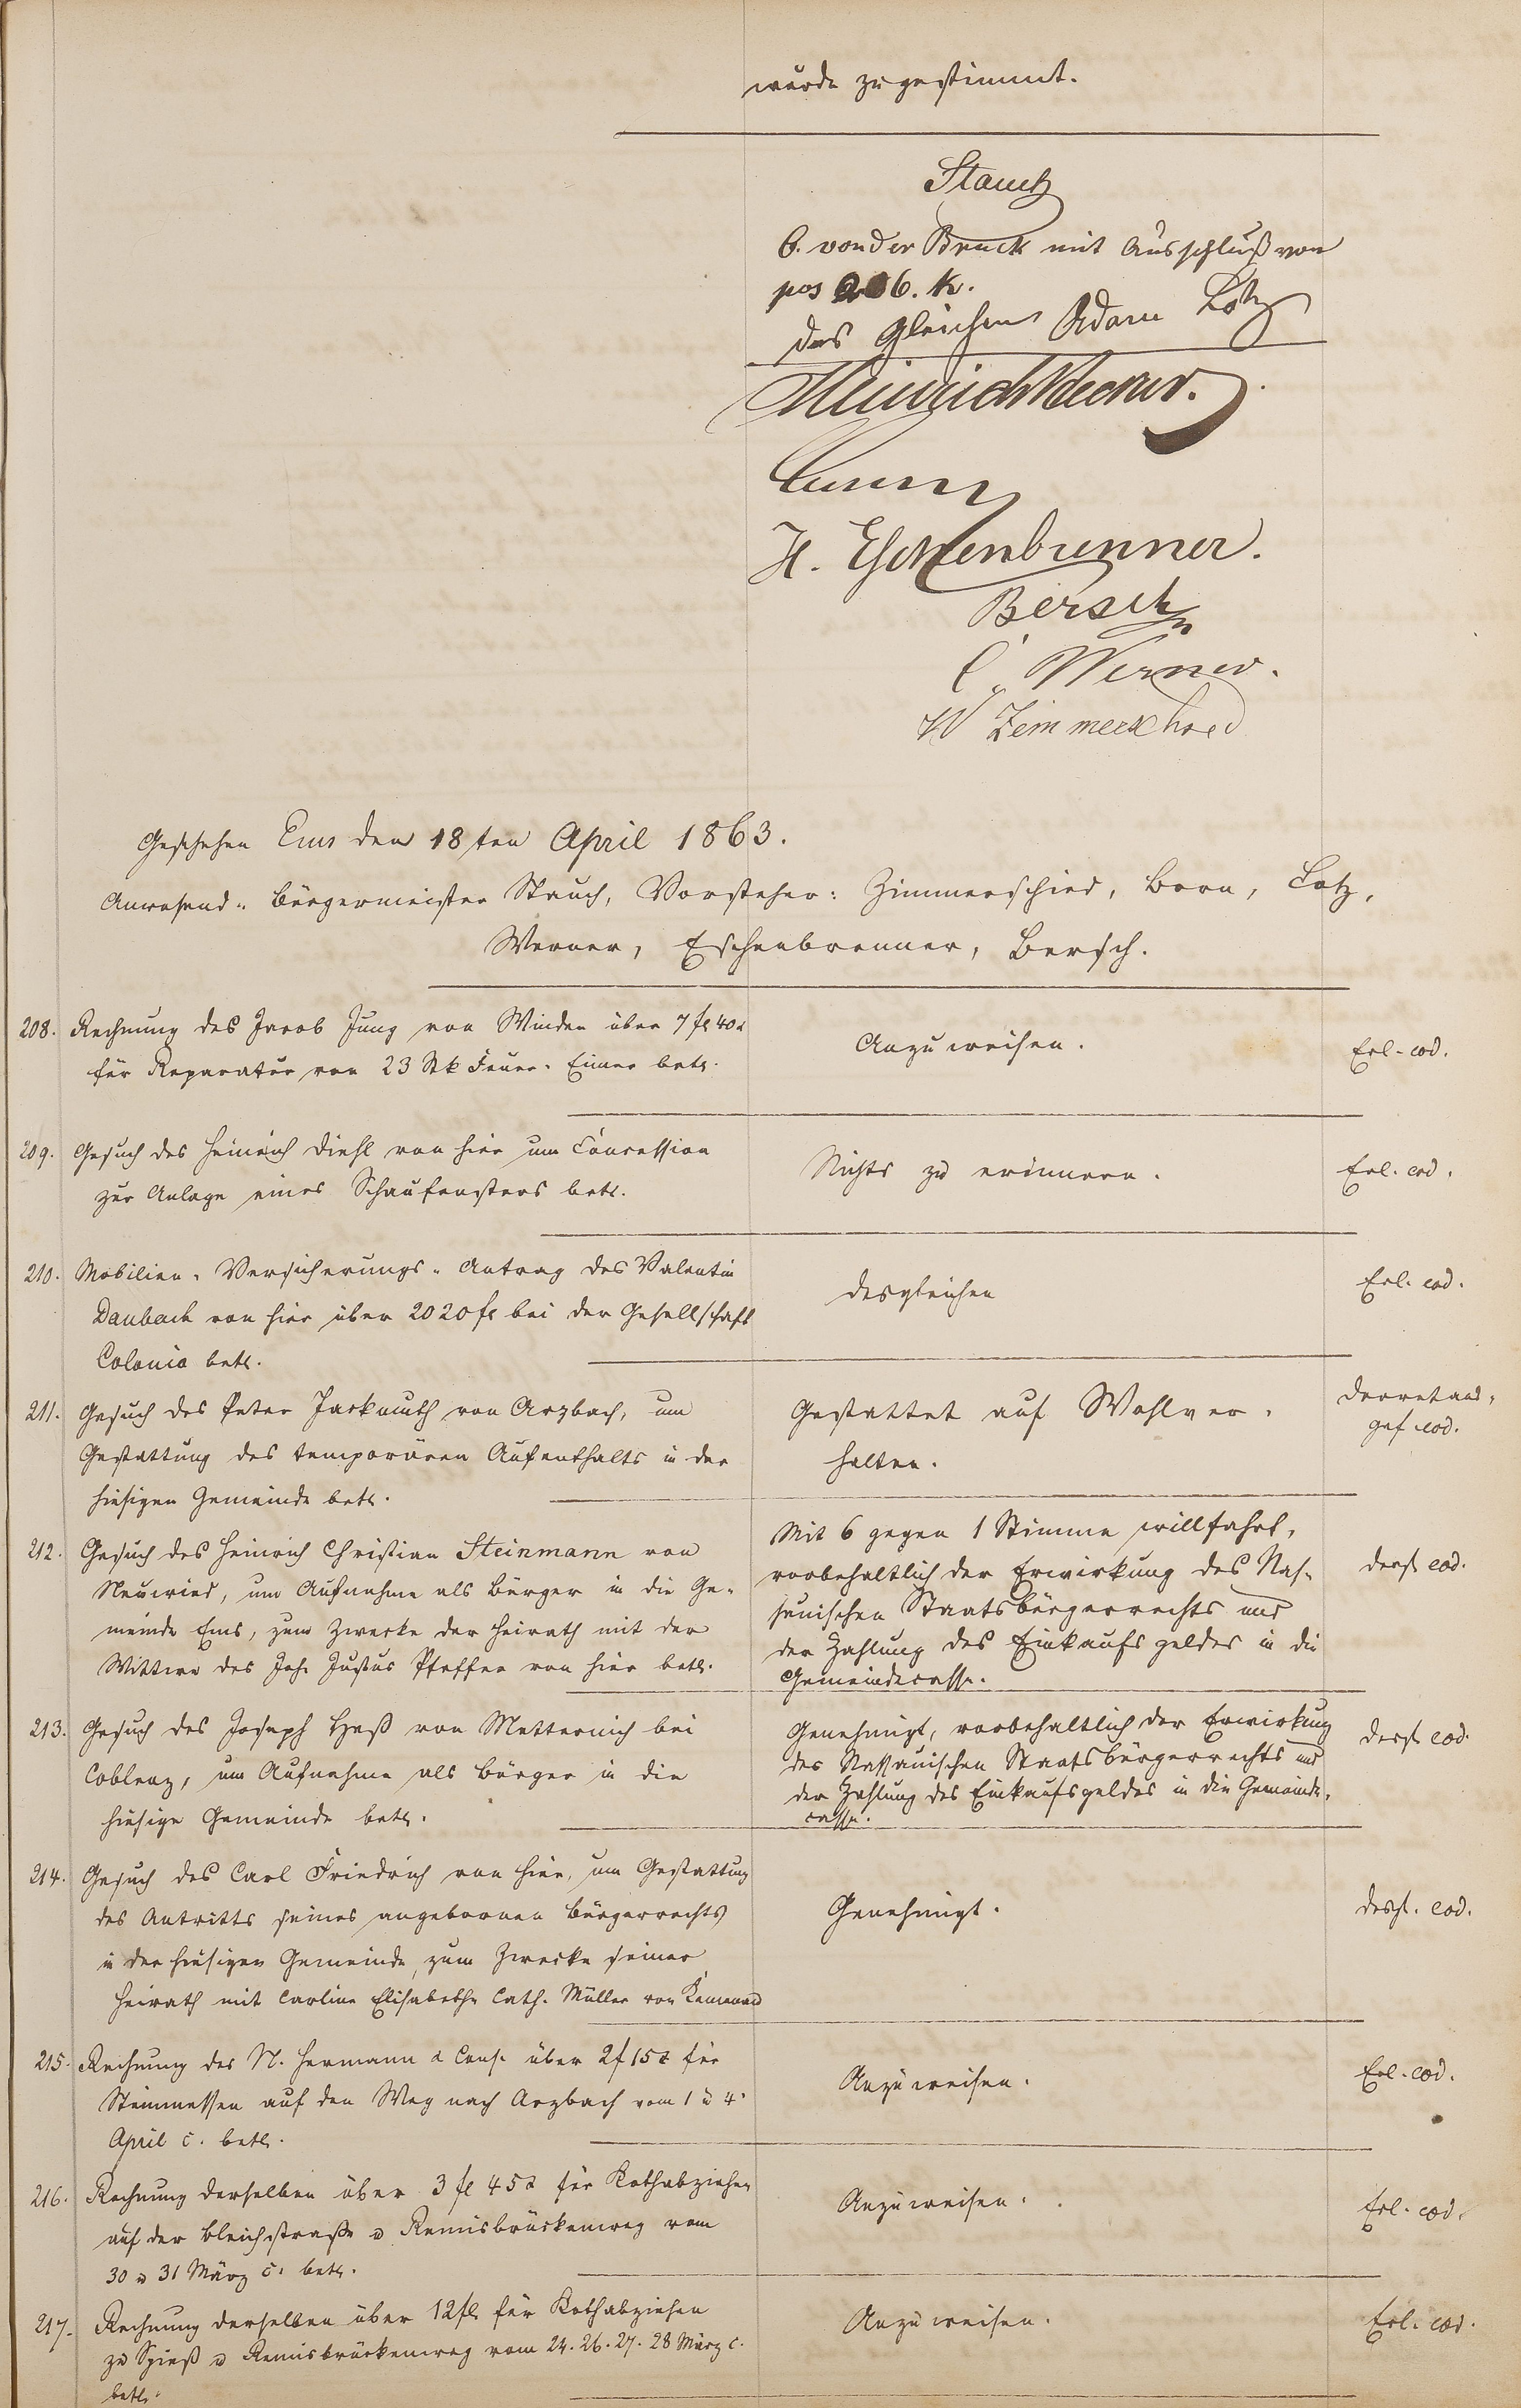 wurde zugestimmt.
Stauch
C. von der Bruck mit Ausschluß von
pos 206. K.
des gleichen Adam Lotz
Heinrich
H. Eschenbrenner.
Bersch
C. Werner.
W Zimmerschied
Geschehen Ems den 18ten April 1863.
Anwesend: Bürgermeister Stauch, Vorsteher: Zimmerschied, Born, Lotz,
Werner, Eschenbrenner, Bersch.
208. Rechnung des Jacob Jung von Winden über 7 fl 40 x
für Reparatur von 23 Stk Feuer-Eimer betr.
Anzuweisen.
Erl. eod.
209. Gesuch des Heinrich Diehl von hier um Concession
zur Anlage eines Schaufensters betr.
Nichts zu erinnern.
Erl. eod.
210. Mobilien-Versicherungs-Antrag des Valentin
Daubach von hier über 2020 fl bei der Gesellschaft
Colonia betr.
desgleichen
Erl. eod.
211. Gesuch des Peter Jackmuth von Arzbach, um
Gestattung des temporären Aufenthalts in der
hiesigen Gemeinde betr.
Gestattet auf Wohlver-
halten.
eod.
212. Gesuch des Heinrich Christian Steinmann von
Neuwied, um Aufnahme als Bürger in die Ge-
meinde Ems, zum Zwecke der Heirath mit der
Wittwe des Joh. Justus Pfeffer von hier betr.
Mit 6 gegen 1 Stimme willfahrt,
vorbehaltlich der Erwirkung des Nas-
sauischen Staatsbürgerrechts und
der Zahlung des Einkaufsgeldes in die
Gemeindecasse.
desgl. eod.
213. Gesuch des Joseph Heß von Metternich bei
Coblenz, um Aufnahme als Bürger in die
hiesige Gemeinde betr.
Genehmigt, vorbehaltlich der Erwirkung
des Nassauischen Staatsbürgerrechts und
der Zahlung des Einkaufsgeldes in die Gemeinde-
casse.
desgl. eod.
214. Gesuch des Carl Friedrich von hier, um Gestattung
des Antritts seines angebornen Bürgerrechts
in der hiesigen Gemeinde, zum Zwecke seiner
Heirath mit Carline Elisabethe Cath. Müller von
Genehmigt.
desgl. eod.
215. Rechnung des N. Hermann & Cons. über 2 f 15 x für
Steinmessen auf den Weg nach Arzbach vom 1 u 4.
April c. betr.
Anzuweisen.
Erl. eod.
216. Rechnung derselben über 3 fl 45 x für Kothabziehen
auf der Bleichstraße u Remisbrückenweg vom
30 u 31 März c. betr.
Anzuweisen.
Erl. eod.
217. Rechnung derselben über 12 fl für Kothabziehen
zu Spieß u Remisbrückenweg vom 24. 26. 27. 28 März c.
betr.
Anzuweisen.
Erl. eod.